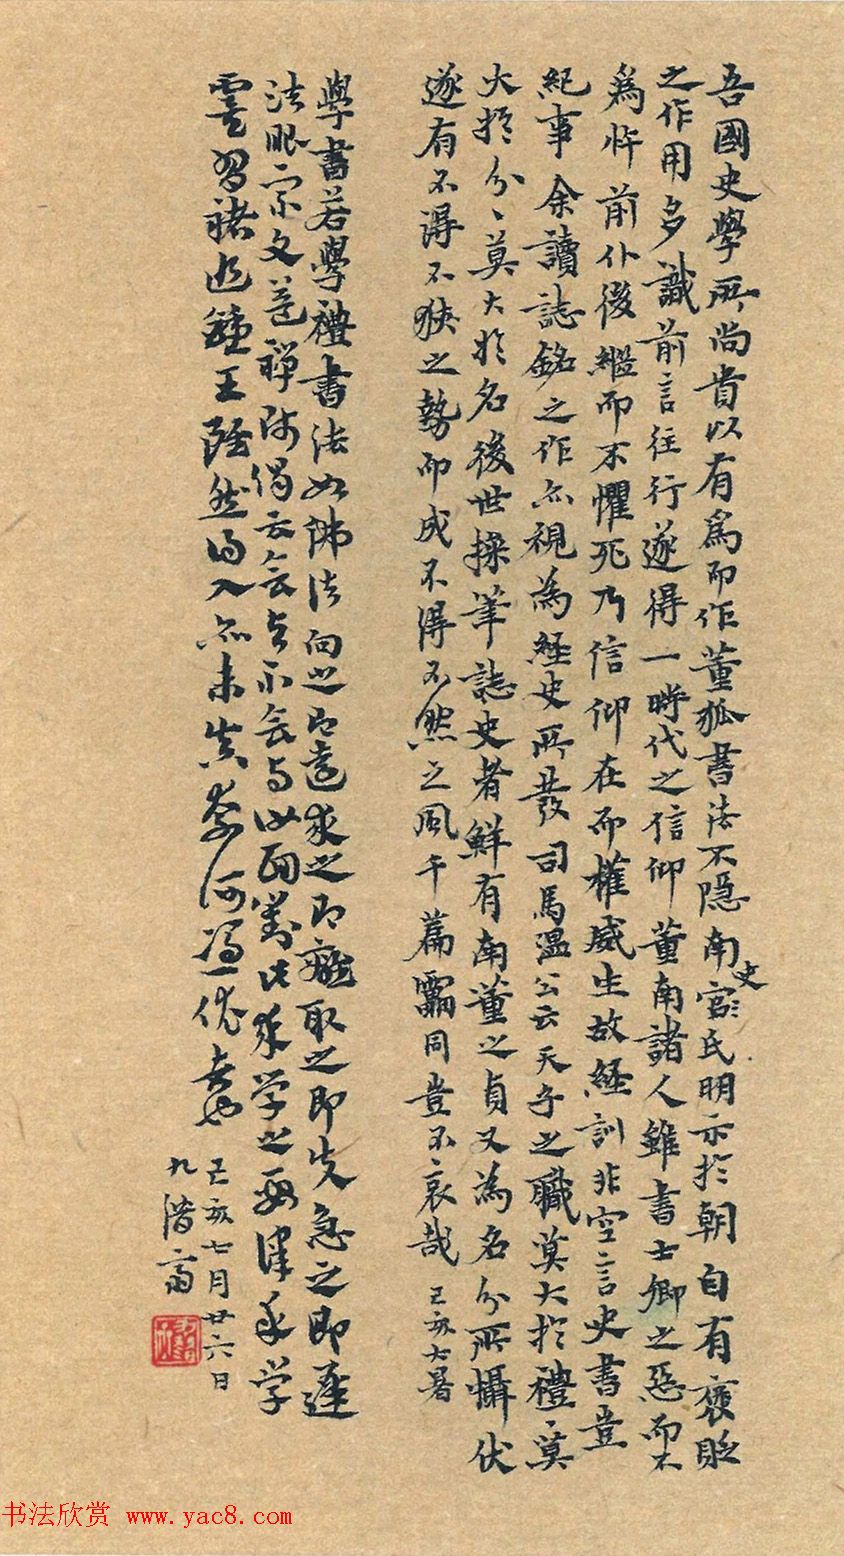 吾國史學所尚貴以有爲而作董狐書法不隱南史宮氏明示於朝自有褒貶
之作用多識前言往行遂得一時代之信仰董南諸人雖書士卿之惡而不
爲忤前仆後繼而不懼死乃信仰在而權威生故經訓非空言史書豈
紀事余讀誌銘之作亦視為經史所發司馬溫公云天子之職莫大於禮、莫
大於分、莫大於名後世操筆誌史者鮮有南董之貞又為名分所懾伏
遂有不得不狹之勢而成不得不然之風千篇靁同豈不哀哉 己亥大暑
學書若學禮書法如佛法向之即遠求之即離取之即失急之即遲
法眼宗文益禪師偈云會與不會與汝面對 求學之要律我学
習褚追鍾王雖然得入亦未
己亥七月廿六日
九潛齋
书法欣赏 www.yac8.com